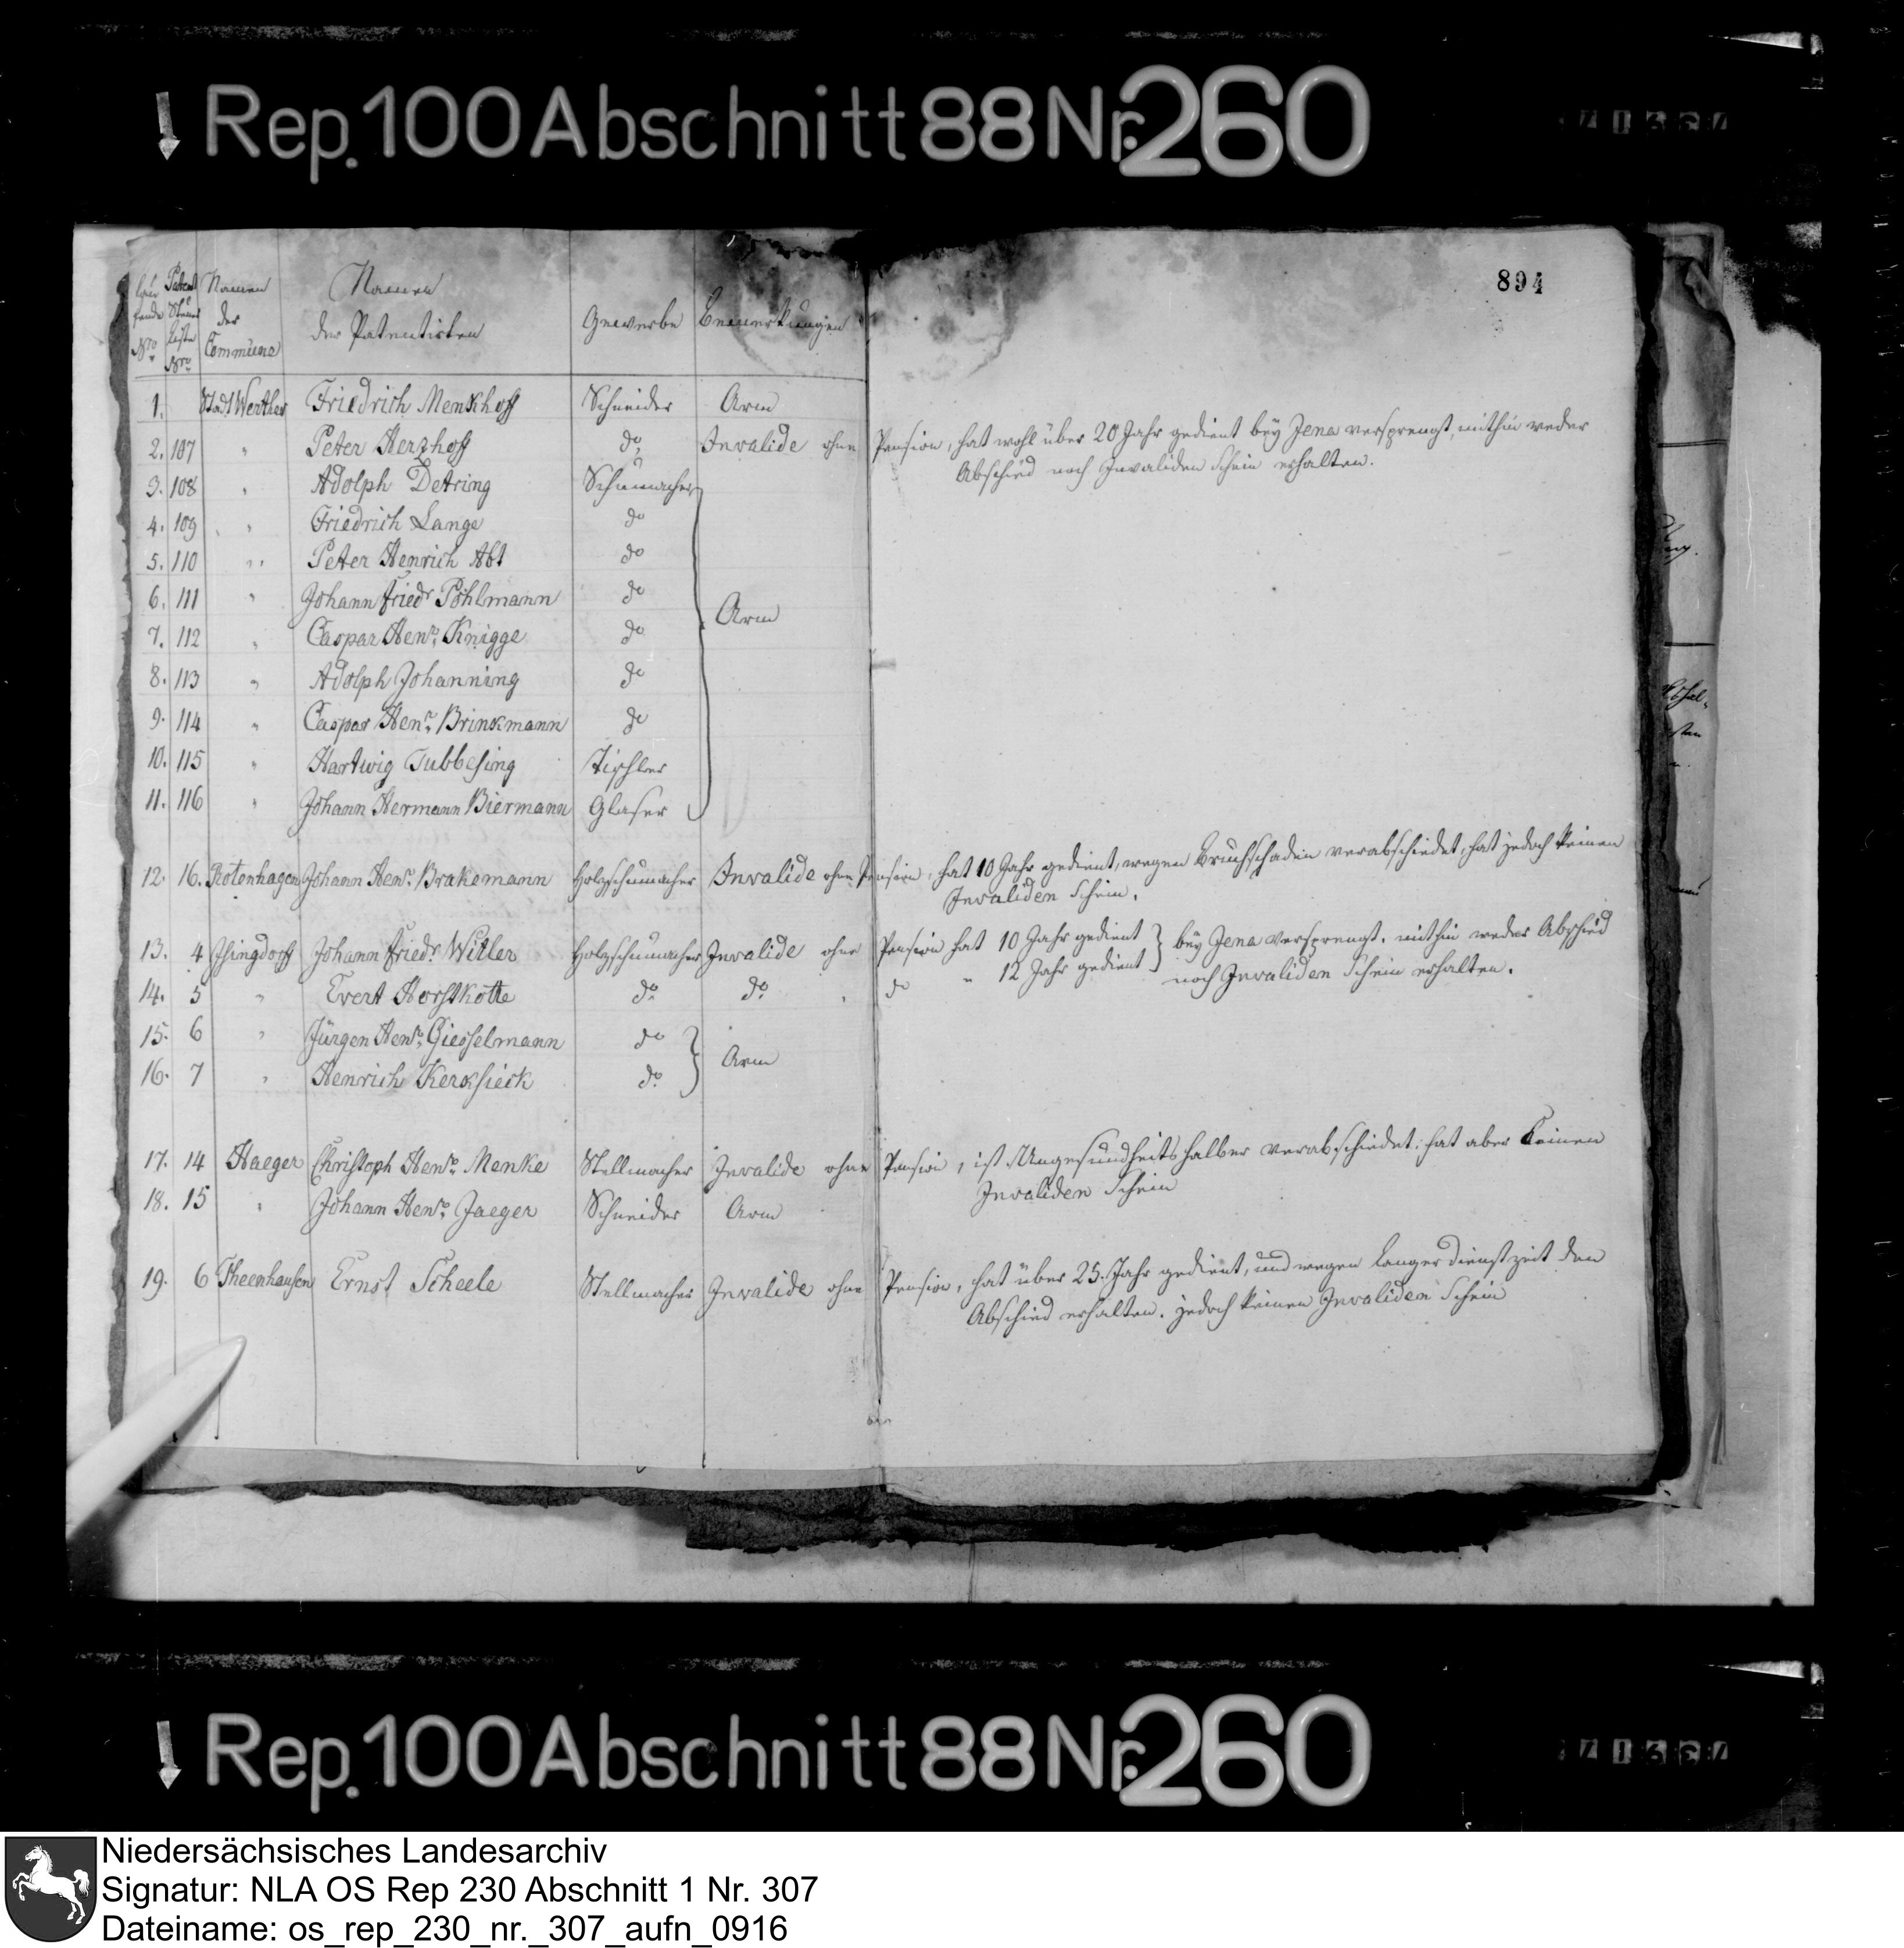 Rep. 100 Abschnitt 88 Nr. 260
894
Laufende Nro
Patent Steuer Liste Nro
Namen der Commune
Namen der Patentirten
Gewerbe
Bemerkungen
1. Stadt Werther Friedrich Menkhoff Schneider Arm
2. 107 " Peter Herzhoff do Invalide ohne Pension, hat wohl über 20 Jahr gedient bey Jena versprengt, mithin weder
Abschied noch Invaliden Schein erhalten.
3. 108 " Adolph Detring Schumacher
4. 109 " Friedrich Lange do
5. 110 " Peter Henrich Abt do
6. 111 " Johann Friedr Pöhlmann do Arm
7. 112 " Caspar Henr. Knigge do
8. 113 " Adolph Johanning do
9. 114 " Caspar Henr. Brinkmann do
10. 115 " Hartwig Tubbesing Tischler
11. 116 " Johann Hermann Biermann Glaser
12. 16. Rotenhagen Johann Henr. Brakemann Holzschumacher Invalide ohne Pension, hat 10 Jahr gedient, wegen Bruchschaden verabschiedet, hat jedoch keinen
Invaliden Schein.
13. 4 Isingdorff Johann Friedr. Witler Holzschumacher Invalide ohne Pension hat 10 Jahr gedient } bey Jena versprengt. mithin weder Abschied
14. 5 " Evert Horstkotte do do " do " 12 Jahr gedient } noch Invaliden Schein erhalten.
15. 6 " Jürgen Henr. Giesselmann do } Arm
16. 7 " Henrich Kerksieck do
17. 14 Haeger Christoph Henr. Menke Stellmacher Invalide ohne Pension, ist Ungesundheits halber verabschiedet; hat aber keinen
Invaliden Schein
18. 15 " Johann Henr. Jaeger Schneider Arm
19. 6 Theenhausen Ernst Scheele Stellmacher Invalide ohne Pension, hat über 25. Jahr gedient, und wegen langer dienstzeit den
Abschied erhalten. jedoch keinen Invaliden Schein
Rep. 100 Abschnitt 88 Nr. 260
Niedersächsisches Landesarchiv
Signatur: NLA OS Rep 230 Abschnitt 1 Nr. 307
Dateiname: os_rep_230_nr._307_aufn_0916